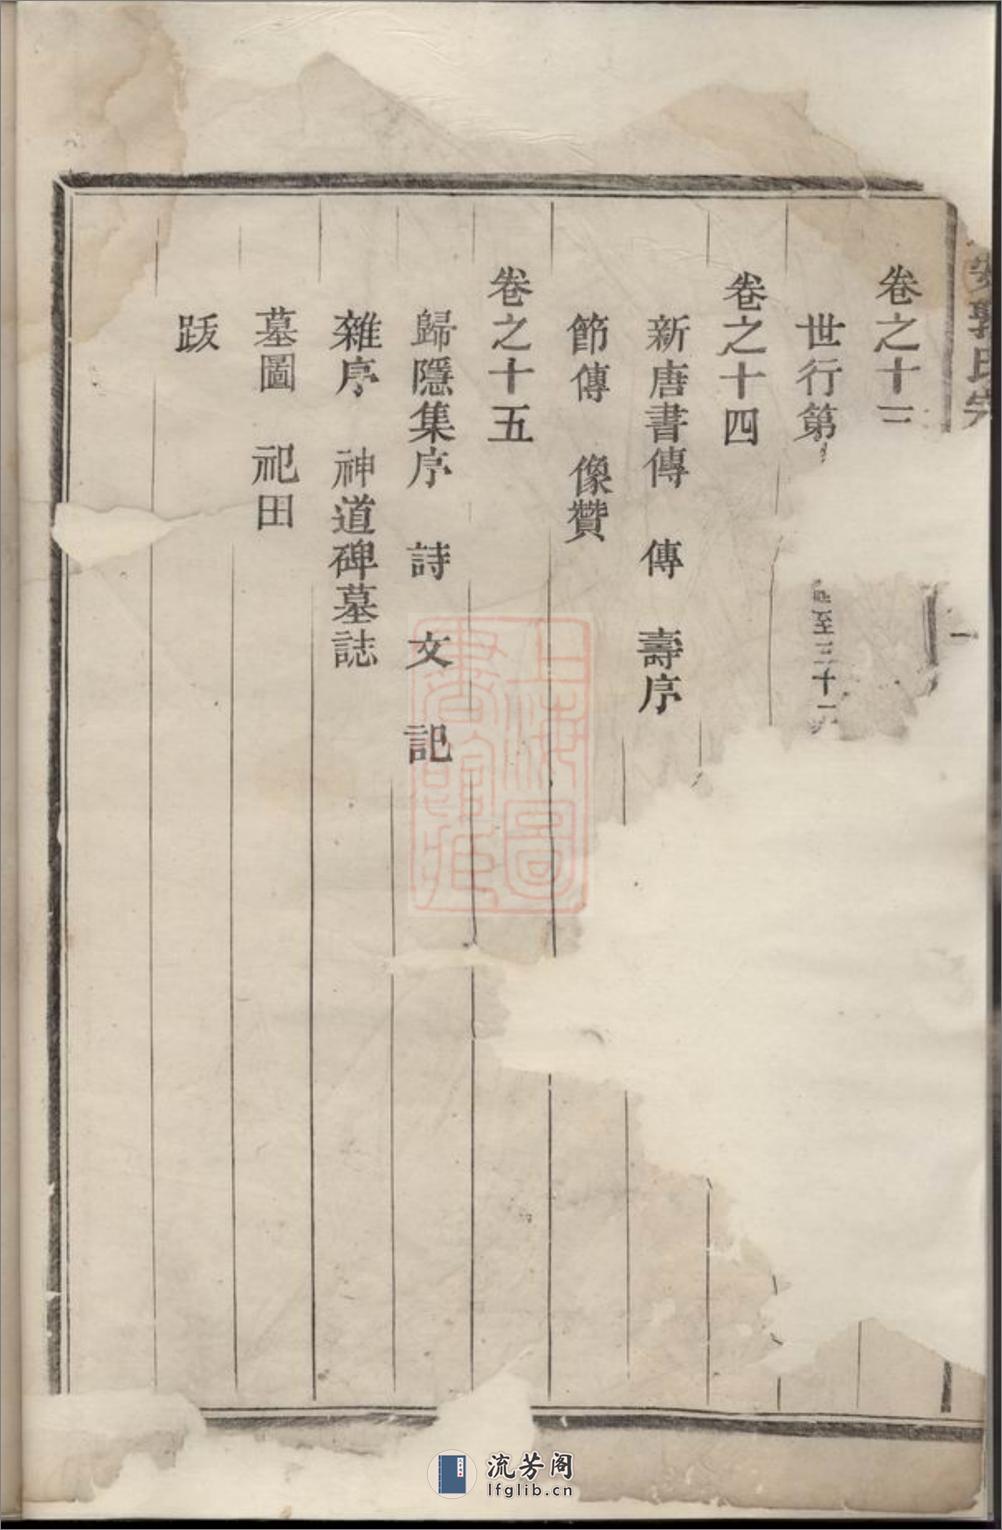 郭氏宗
一
卷之十三
世行第
至三十二
卷之十四
新唐書傳 傳 壽序
節傳 像贊
卷之十五
歸隱集序 詩 文 記
雜序 神道碑墓誌
墓圖 祀田
跋
上海圖書館藏
流芳阁
lfglib.cn